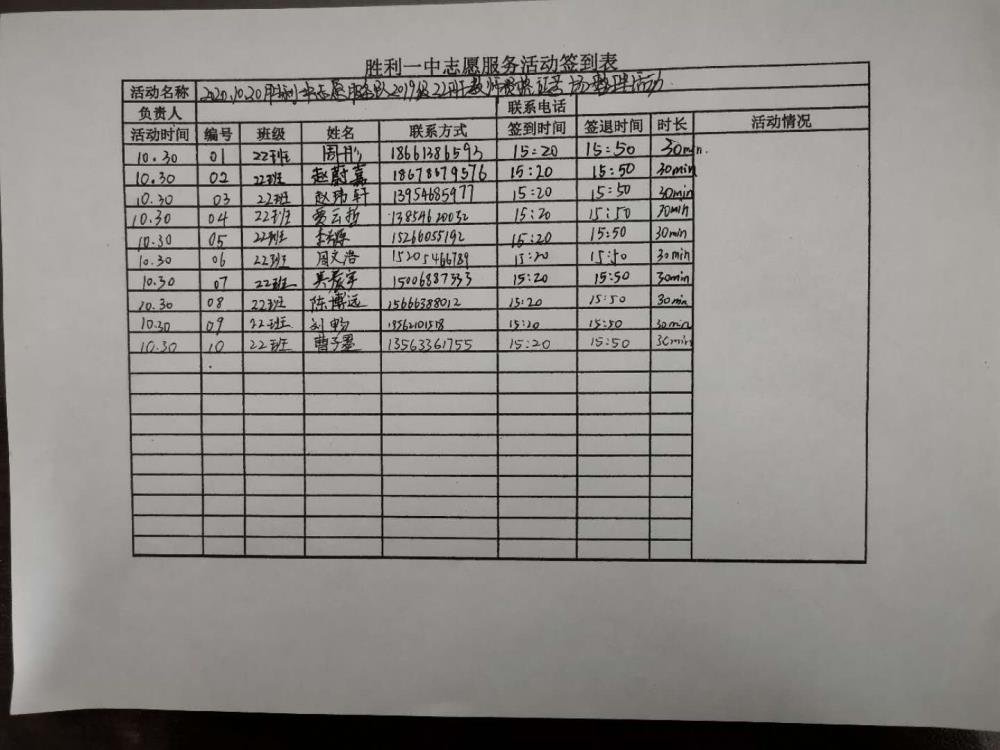 胜利一中志愿服务活动签到表
活动名称 2020.10.20胜利一中志愿服务队2019级22班教师资格证考场整理活动
负责人 联系电话
活动时间 编号 班级 姓名 联系方式 签到时间 签退时间 时长 活动情况
10.30 01 22班 周彤 18661386593 15:20 15:50 30min.
10.30 02 22班 赵蔚嘉 18678679576 15:20 15:50 30min
10.30 03 22班 赵玮轩 13954685977 15:20 15:50 30min
10.30 04 22班 云哲 13854620032 15:20 15:50 30min
10.30 05 22班 15266055192 15:20 15:50 30min
10.30 06 22班 周文浩 15205466789 15:20 15:50 30min
10.30 07 22班 宇 15006887333 15:20 15:50 30min
10.30 08 22班 陈博远 15666388012 15:20 15:50 30min
10.30 09 22班 刘畅 15:20 15:50 30min
10.30 10 22班 曹子墨 13563361755 15:20 15:50 30min